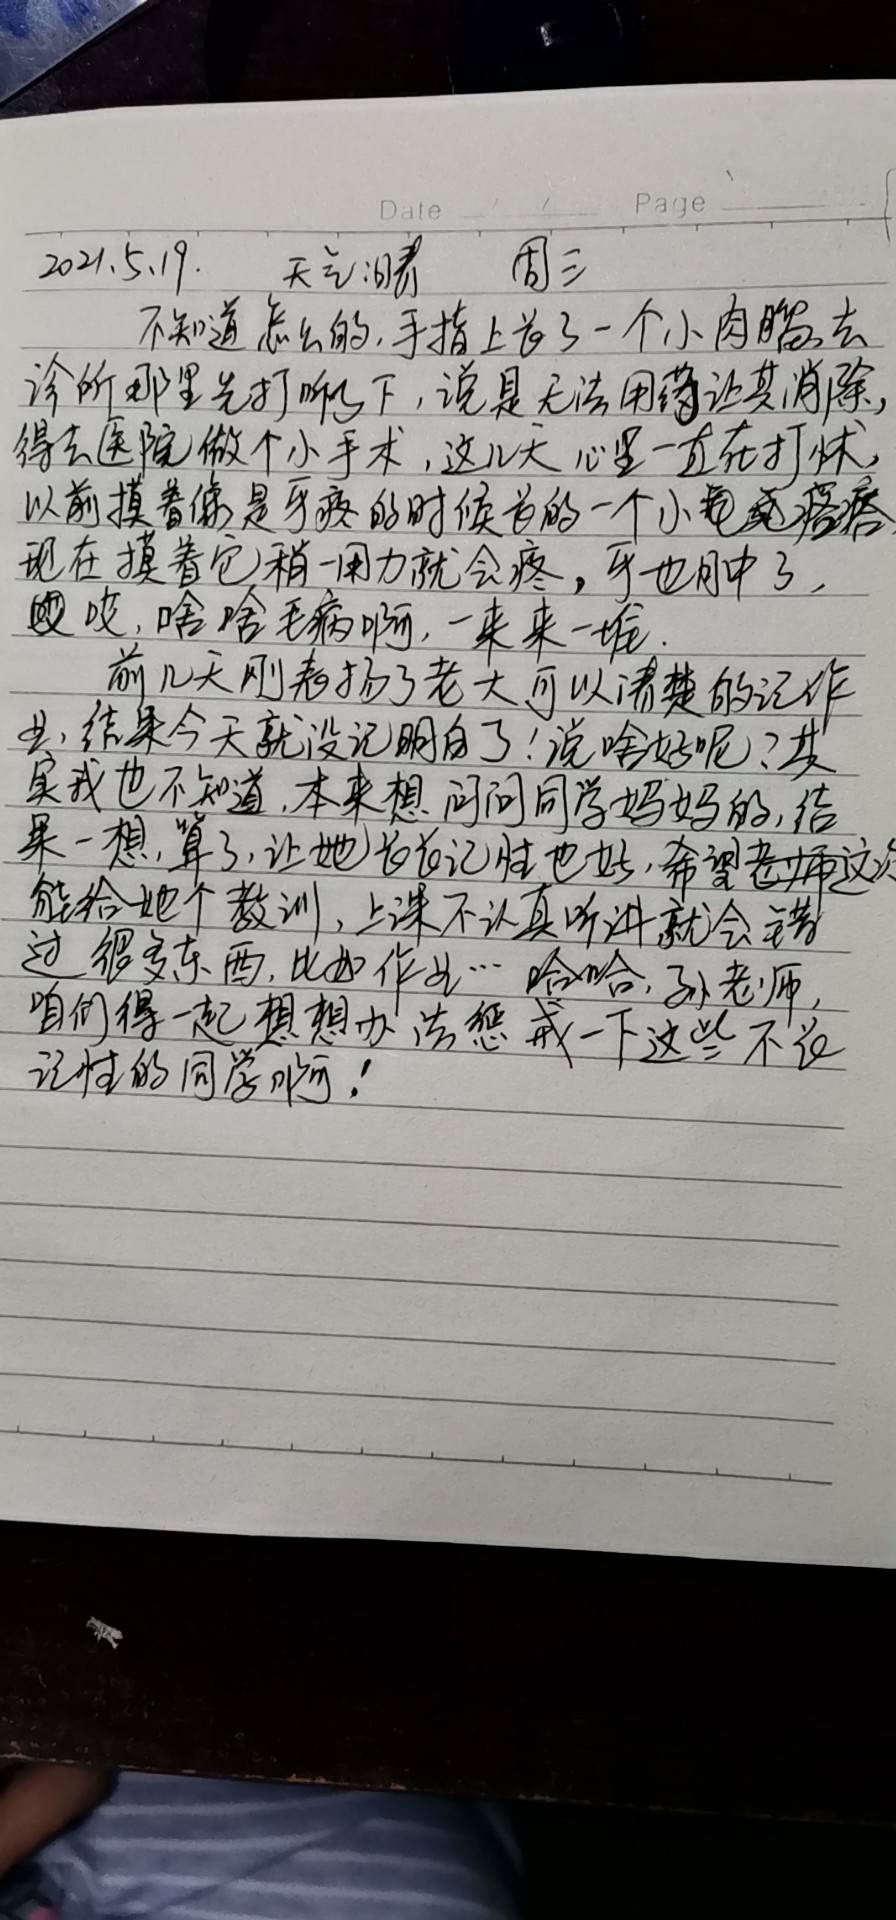 Date / / Page
2021.5.19. 天气:晴 周三
不知道怎么的,手指上长了一个小肉瘤,去
诊所那里先打听了下,说是无法用药让其消除,
得去医院做个小手术,这几天心里一直在打怵,
以前摸着像是牙疼的时候长的一个小疙瘩,
现在摸着它稍一用力就会疼,牙也肿了,
哎哎,啥啥毛病啊,一来来一堆.
前几天刚表扬了老大可以清楚的记作
业,结果今天就没记明白了!说啥好呢?其
实我也不知道,本来想问问同学妈妈的,结
果一想,算了,让她长长记性也好,希望老师这次
能给她个教训,上课不认真听讲就会错
过很多东西,比如作业… 哈哈,孙老师,
咱们得一起想想办法惩戒一下这些不长
记性的同学啊!